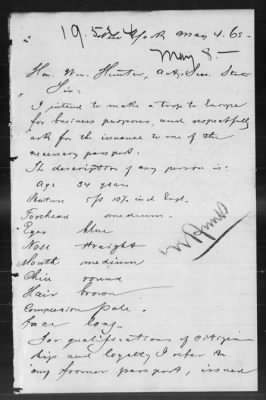 19.524
New York May 4. 65
May 8 —
Hon. Wm. Hunter, Act. Sec. State
Sir:
I intend to make a trip to Europe
for business purposes, and respectfully
ask for the issuance to me of the
necessary passport.
The description of my person is:
Age 34 years
Stature 5 ft 10½ inch Engl.
Forehead medium.
Eyes blue
Nose straight
Mouth medium
Chin round
Hair brown
Complexion pale.
Face long.
For qualifications of citizen
ship and loyalty I refer to
my former passport, issued